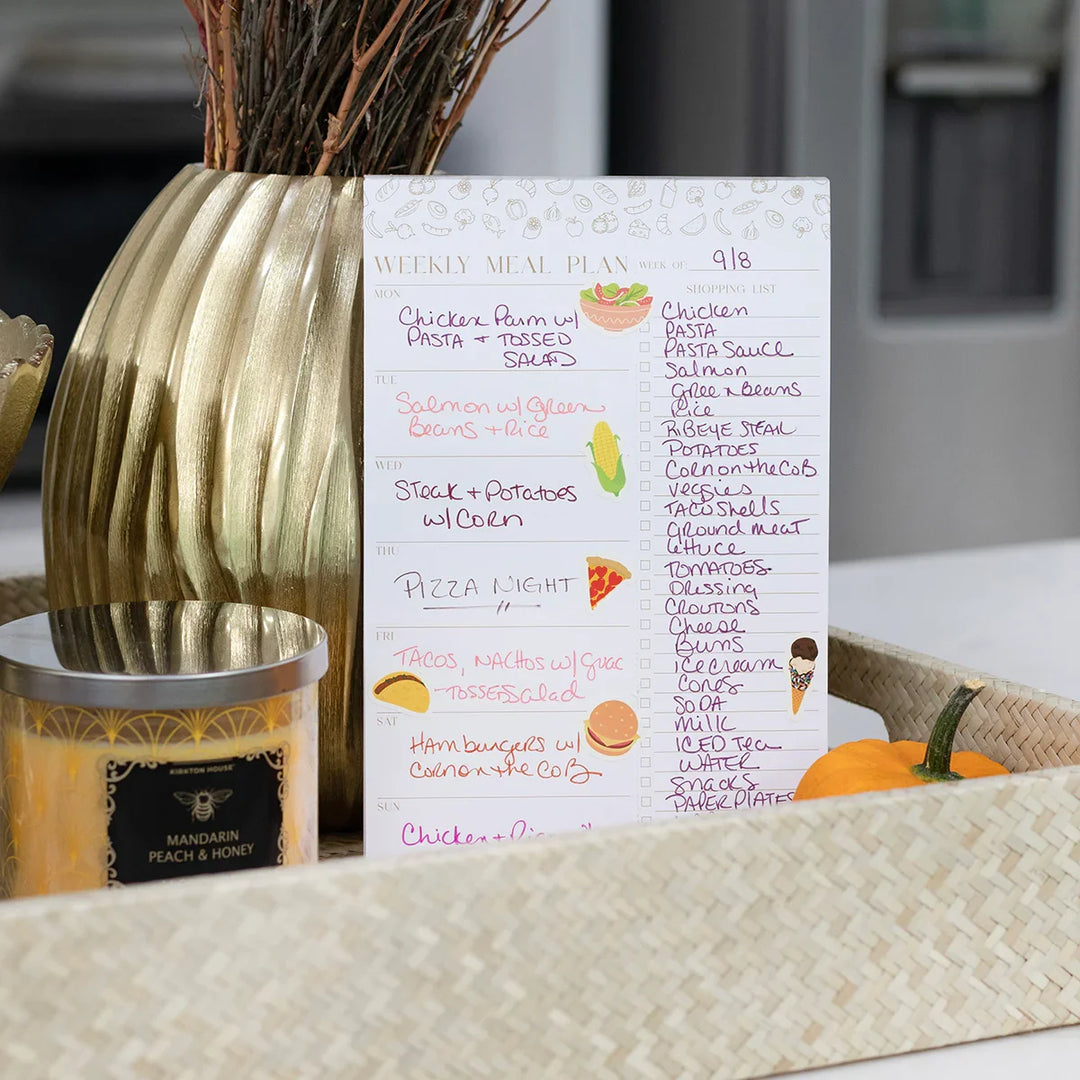 WEEKLY MEAL PLAN
WEEK OF: 9/8
MON
Chicken Parm w/
PASTA + TOSSED
SALAD
TUE
Salmon w/ Green
Beans + Rice
WED
Steak + Potatoes
w/ Corn
THU
PIZZA NIGHT
FRI
TACOS, NACHOS w/ Guac
- TOSSED Salad
SAT
Hamburgers w/
Corn on the CoB
SUN
Chicken +
SHOPPING LIST
Chicken
PASTA
PASTA Sauce
Salmon
Green Beans
Rice
RiBEYE STEAK
POTATOES
Corn on the CoB
Veggies
TACO Shells
Ground meat
Lettuce
TOMATOES
Dressing
CROUTONS
Cheese
Buns
Ice cream
Cones
SODA
milk
ICED Tea
WATER
Snacks
PAPER PLATES
KIRKTON HOUSE
MANDARIN
PEACH & HONEY